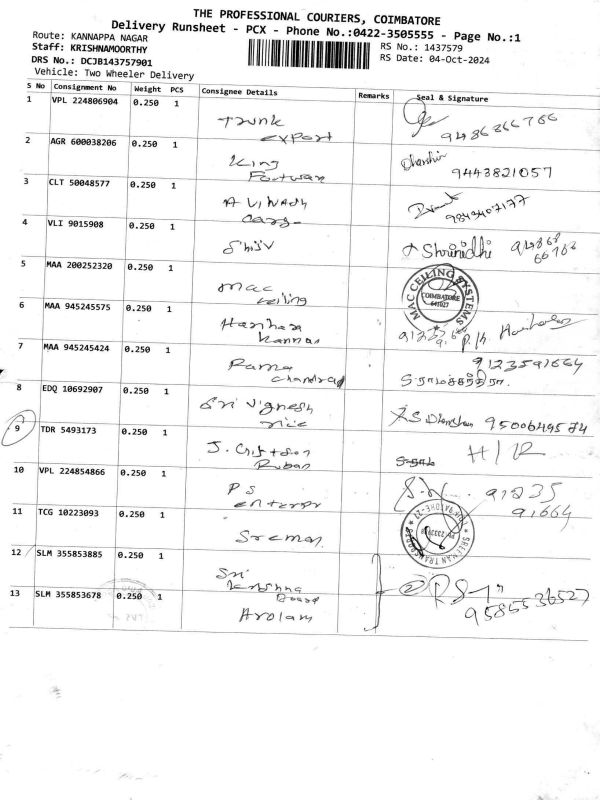 THE PROFESSIONAL COURIERS, COIMBATORE
Delivery Runsheet - PCX - Phone No.:0422-3505555 - Page No.:1
Route: KANNAPPA NAGAR
RS No.: 1437579
Staff: KRISHNAMOORTHY
RS Date: 04-Oct-2024
DRS No.: DCJB143757901
Vehicle: Two Wheeler Delivery
S No Consignment No Weight PCS Consignee Details Remarks Seal & Signature
1 VPL 224806904 0.250 1
Trunk
export
9486866766
2 AGR 600038206 0.250 1
King
Footwar
Dharshini
9443821057
3 CLT 50048577 0.250 1
AVinash
Cargo
4 VLI 9015908 0.250 1
Shiv
Shrinidhi 94868
66766
5 MAA 200252320 0.250 1
Mac
Ceiling
MAC CEILING SYSTEMS
COIMBATORE
641027
6 MAA 945245575 0.250 1
Harihara
Kannan
7 MAA 945245424 0.250 1
Rama
Chandran
9123591664
8 EDQ 10692907 0.250 1
Sri Vignesh
rice
9500649584
9 TDR 5493173 0.250 1
J.
Ruban
H/R
10 VPL 224854866 0.250 1
PS
enterpr
91235
91664
11 TCG 10223093 0.250 1
Sreeman
SREEMAN TRANSPORTS
12 SLM 355853885 0.250 1
Sri
Krishna
13 SLM 355853678 0.250 1
Arolam
9585536527